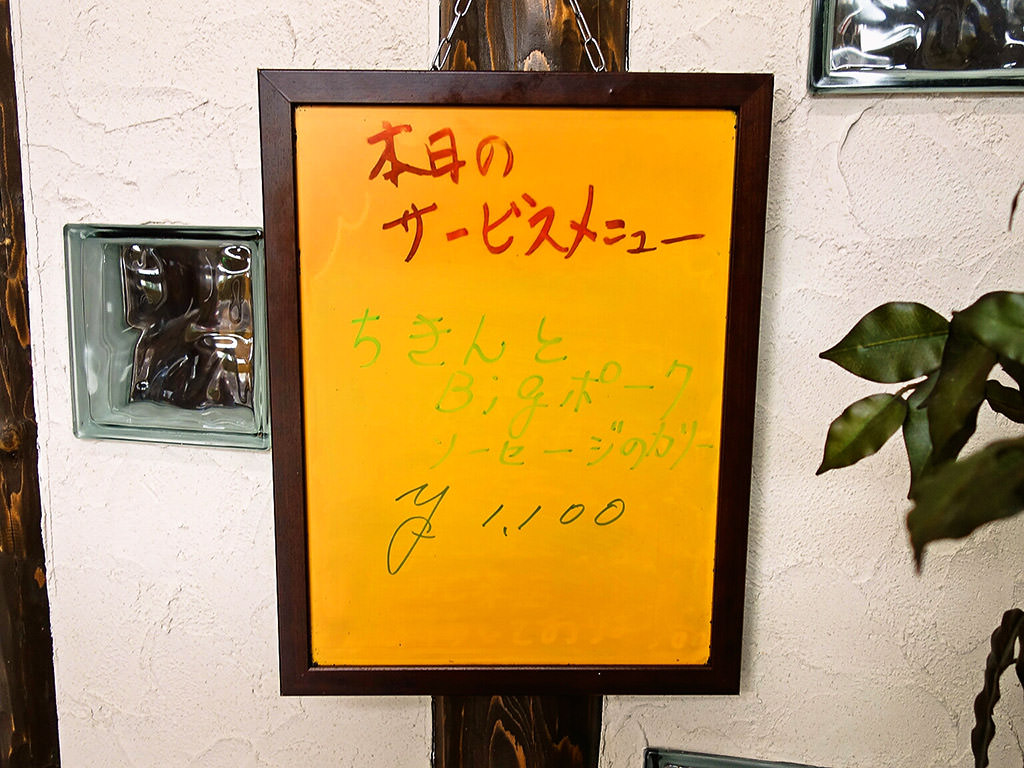 本日の
サービスメニュー
ちきんと
Bigポーク
ソーセージのカリー
¥ 1,100